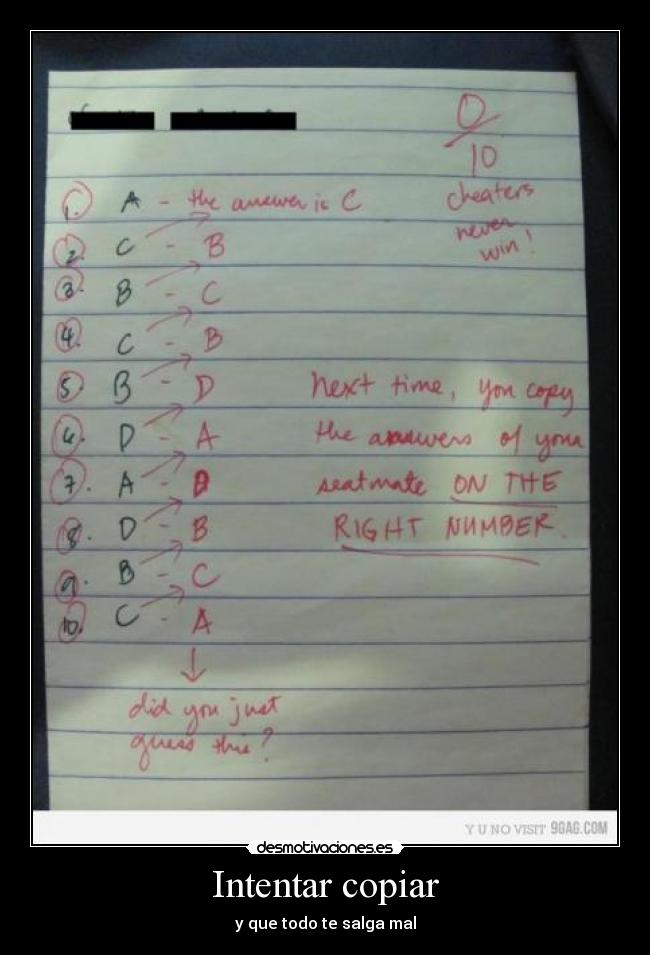 0/10
cheaters
never
win!
1. A - the answer is C
2. C - B
3. B - C
4. C - B
5. B - D
6. D - A
7. A - D
8. D - B
9. B - C
10. C - A
did you just
guess this?
Next time, you copy
the answers of your
seatmate ON THE
RIGHT NUMBER.
Y U NO VISIT 9GAG.COM
desmotivaciones.es
Intentar copiar
y que todo te salga mal